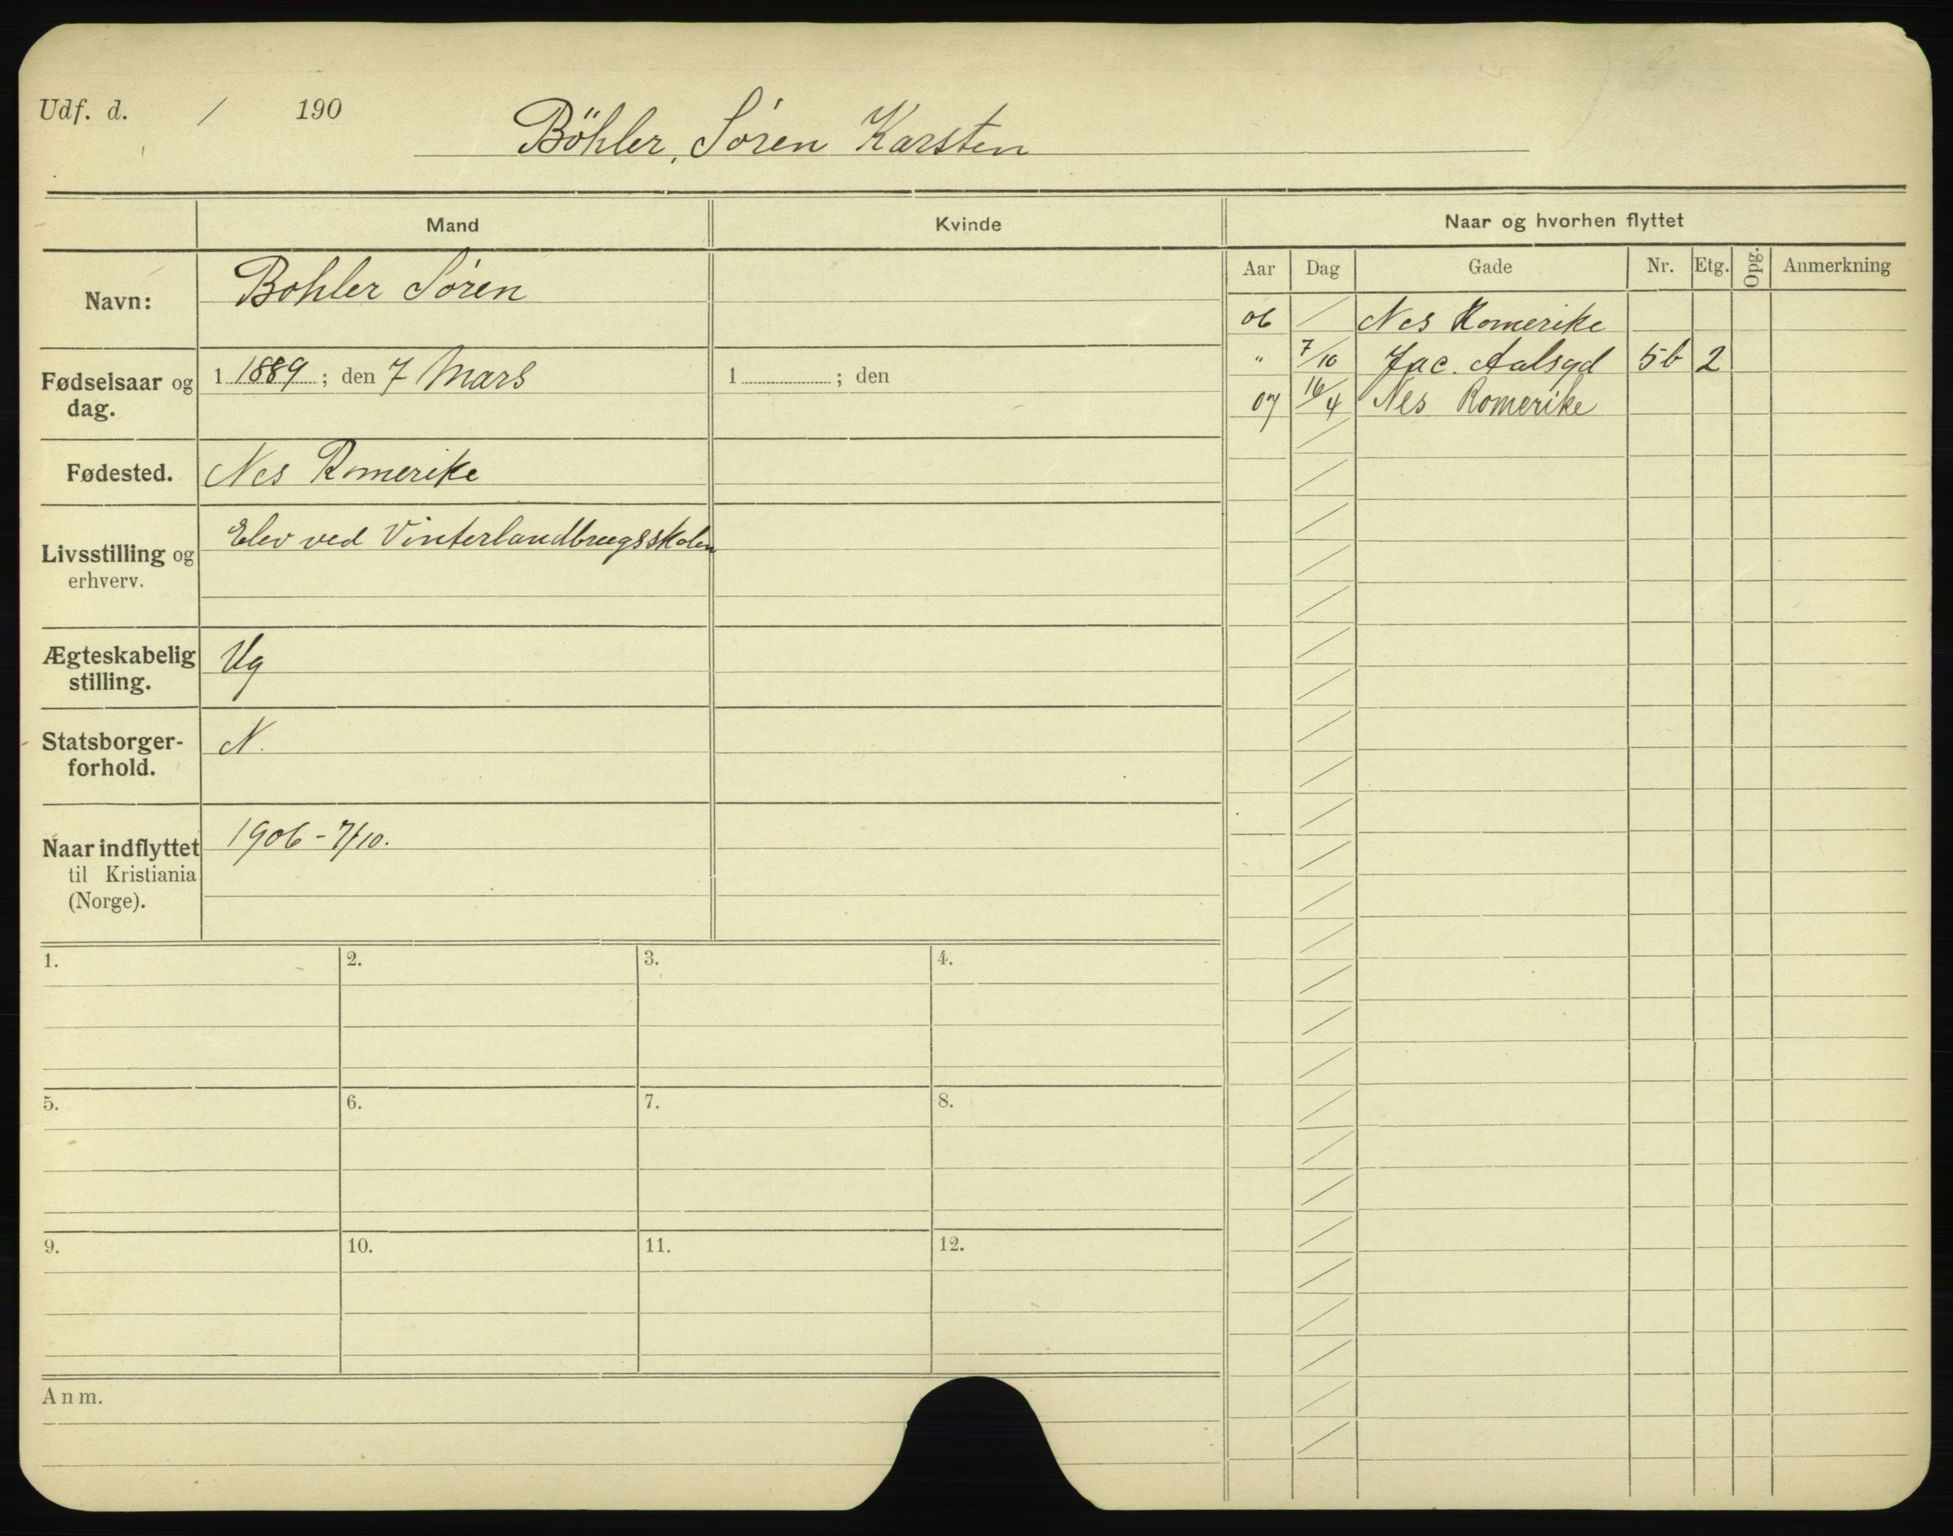 Udf. d. / 190
Böhler, Søren Karsten
Mand Kvinde Naar og hvorhen flyttet
Aar Dag Gade Nr. Etg. Opg. Anmerkning
Navn: Bohler Søren
06 / Nes Romerike
" 7/10 Jac. Aalsgd 5b 2
07 16/4 Nes Romerike
Fødselsaar og dag. 1 1889 ; den 7 Mars 1 ; den
Fødested. Nes Romerike
Livsstilling og erhverv. Elev ved Vinterlandbrugsskolen
Ægteskabelig stilling. Ug
Statsborger-
forhold. N.
Naar indflyttet 1906 - 7/10.
til Kristiania
(Norge).
1. 2. 3. 4.
5. 6. 7. 8.
9. 10. 11. 12.
Anm.